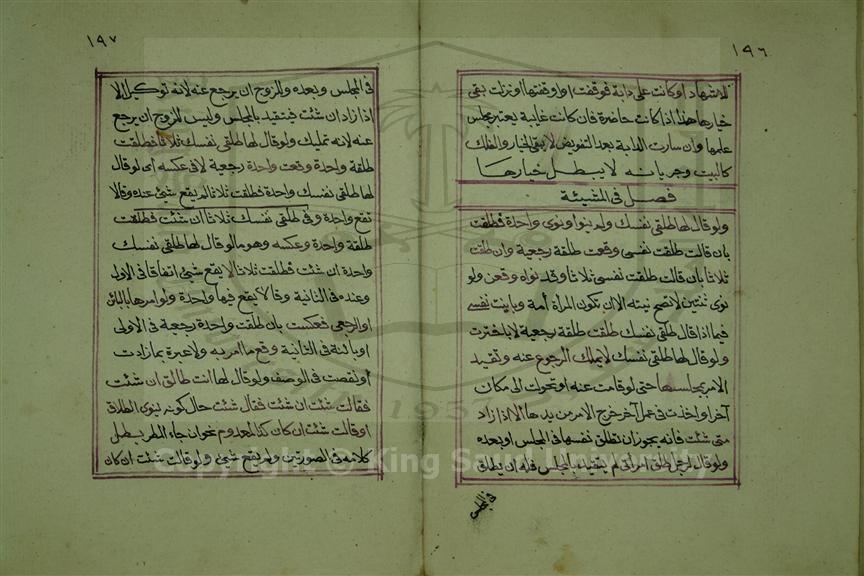 ١٩٦
للاشهاد او كانت على دابة فوقفت او اوقفتها او نزلت بقى
خيارها هذا اذا كانت حاضرة فان كانت غايبة يعتبر مجلس
علمها وان سارت الدابة بعد التفويض لا يبقى الخيار والفلك
كالبيت وجريانه لا يبطل خيارها
فصل فى المشيئة
ولو قال لها طلقى نفسك ولم ينو او نوى واحدة فطلقت
بان قالت طلقت نفسى وقعت طلقة رجعية وان طلقت
ثلاثا بان قالت طلقت نفسى ثلاثا وقد نواه وقعن ولو
نوى ثنتين لا تصح نيته الا ان تكون المرأة أمة وبابنت نفسى
فيما اذا قال طلقى نفسك طلقت طلقة رجعية لا باخترت
ولو قال لها طلقى نفسك لا يملك الرجوع عنه وتقيد
الامر بمجلسها حتى لو قامت عنه او تحولت الى مكان
آخر او اخذت فى عمل آخر خرج الامر من يدها الا اذا زاد
متى شئت فانه يجوز ان تطلق نفسها فى المجلس او بعده
ولو قال لرجل طلق امراتى لم يتقيد بالمجلس فله ان يطلق
فى المجلس
١٩٧
فى المجلس وبعده وللزوج ان يرجع عنه لانه توكيل الا
اذا زاد ان شئت فيتقيد بالمجلس وليس للزوج ان يرجع
عنه لانه تمليك ولو قال لها طلقى نفسك ثلاثا فطلقت
طلقة واحدة وقعت واحدة رجعية لا فى عكسه اى لو قال
لها طلقى نفسك واحدة فطلقت ثلاثا لم يقع شئ عنده وقالا
تقع واحدة وفى طلقى نفسك ثلاثا ان شئت فطلقت
طلقة واحدة وعكسه وهو ما لو قال لها طلقى نفسك
واحدة ان شئت فطلقت ثلاثا لا يقع شئ اتفاقا فى الاولى
وعنده فى الثانية وقالا يقع فيها واحدة ولو امرها بالبائن
او الرجعى فعكست بان طلقت واحدة رجعية فى الاولى
او بائنة فى الثانية وقع ما امر به ولا عبرة بما زادت
او نقصت فى الوصف ولو قال لها انت طالق ان شئت
فقالت شئت ان شئت فقال شئت حال كونه ينوى الطلاق
او قالت شئت ان كان كذا لمعدوم نحو ان جاء المطر يبطل
كلامه فى الصورتين ولم يقع شئ ولو قالت شئت ان كان
Copyright © King Saud University
1957